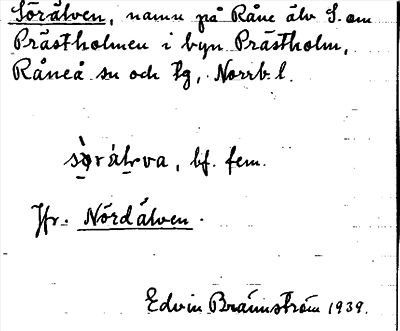 Sörälven, namn på Råne älv S. om
Prästholmen i byn Prästholm,
Råneå sn och tg, Norrb. l.
sòrál̥va, bf. fem.
Jfr. Nördälven.
Edvin Brännström 1939.